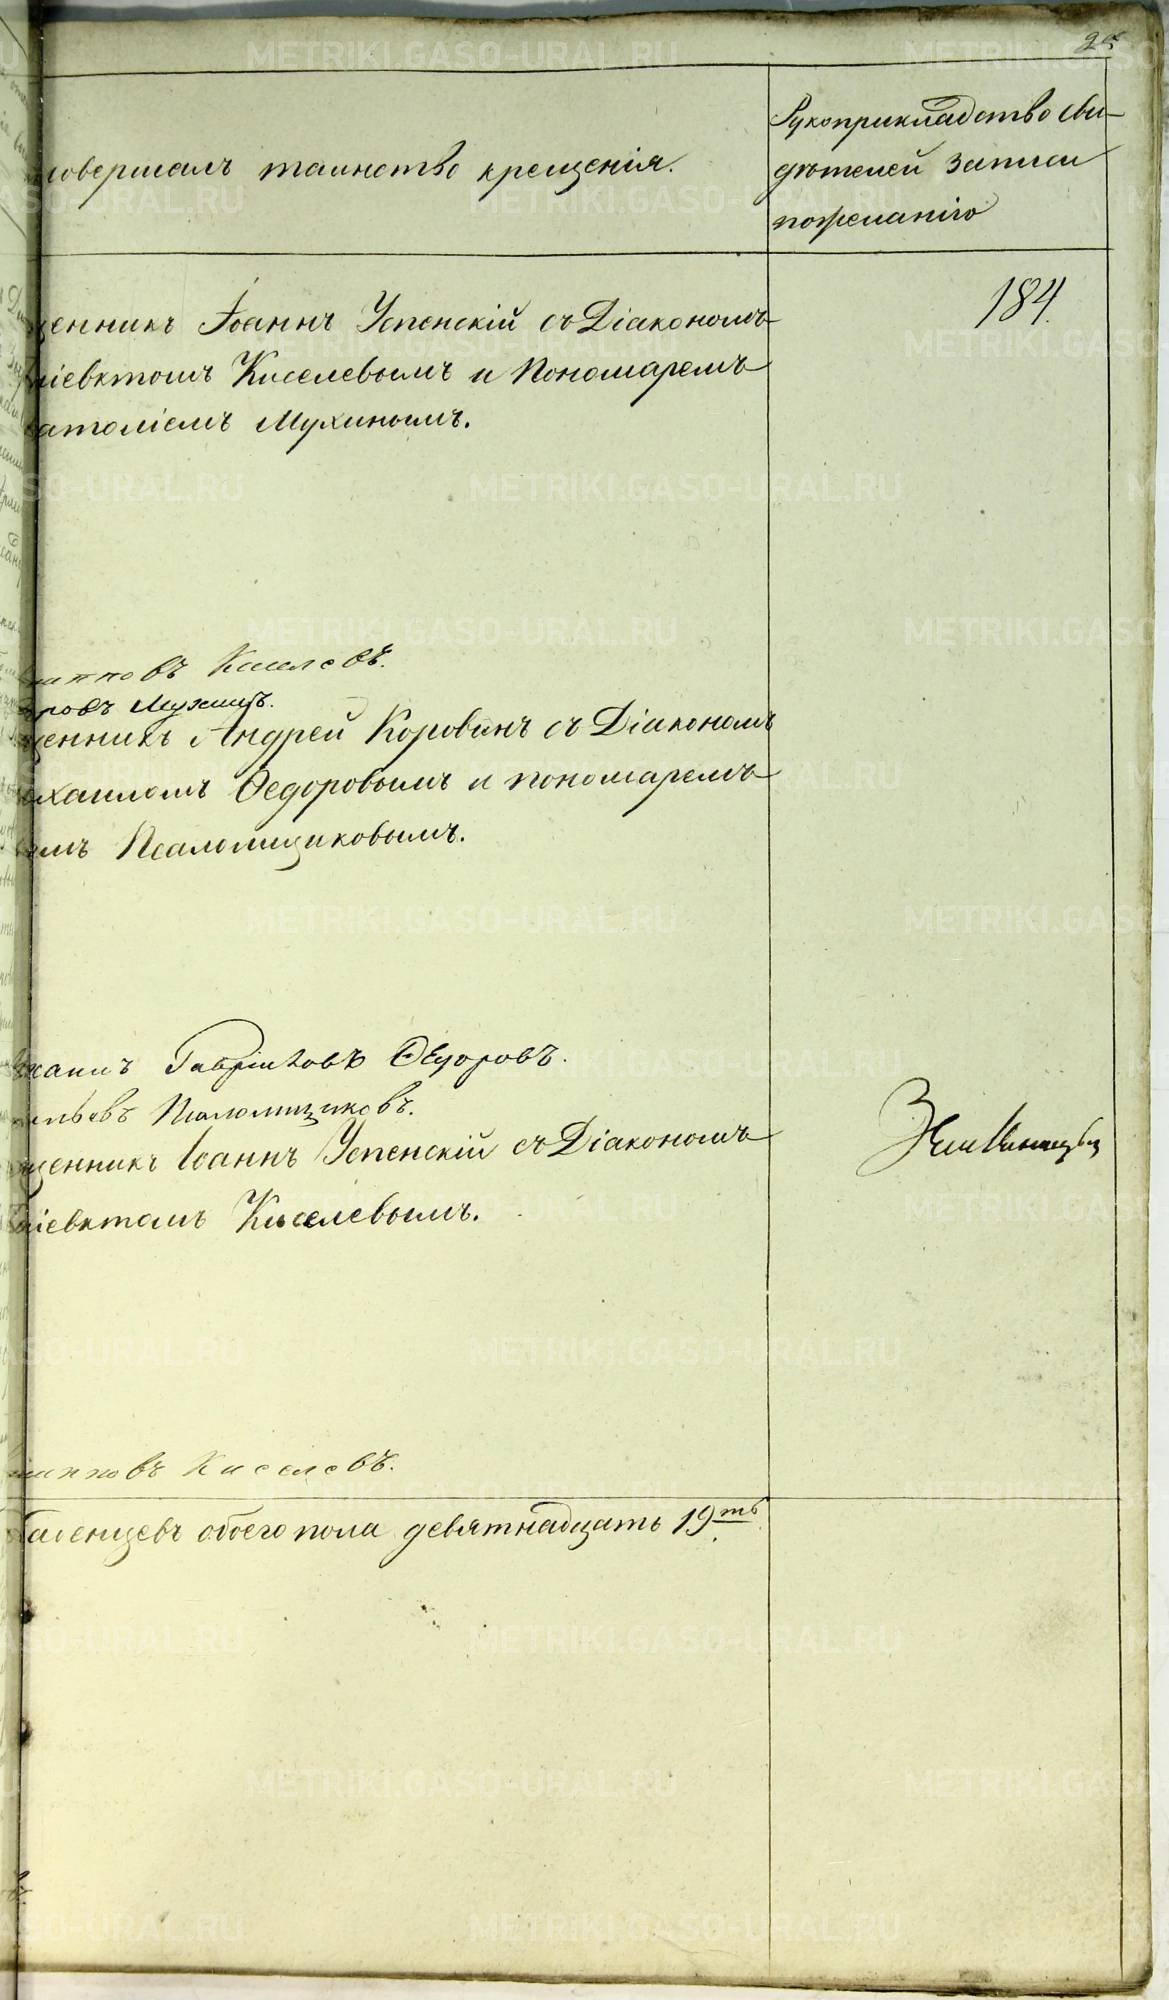 совершалъ таинство крещенія.
Рукоприкладство сви-
дѣтелей записи
пожеланію
184.
щенникъ Іоаннъ Успенскій съ Діакономъ
ліевктомъ Киселевымъ и Пономаремъ
атоліемъ Мухинымъ.
Киселевъ.
ровъ Мухинъ.
щенникъ Андрей Коровинъ съ Діакономъ
хаиломъ Ѳедоровымъ и пономаремъ
Псаломщиковымъ.
Гавриловъ Ѳедоровъ.
Псаломщиковъ.
щенникъ Іоаннъ Успенскій съ Діакономъ
ліевктомъ Киселевымъ.
Киселевъ.
младенцевъ обоего пола девятнадцать 19ть
METRIKI.GASO-URAL.RU